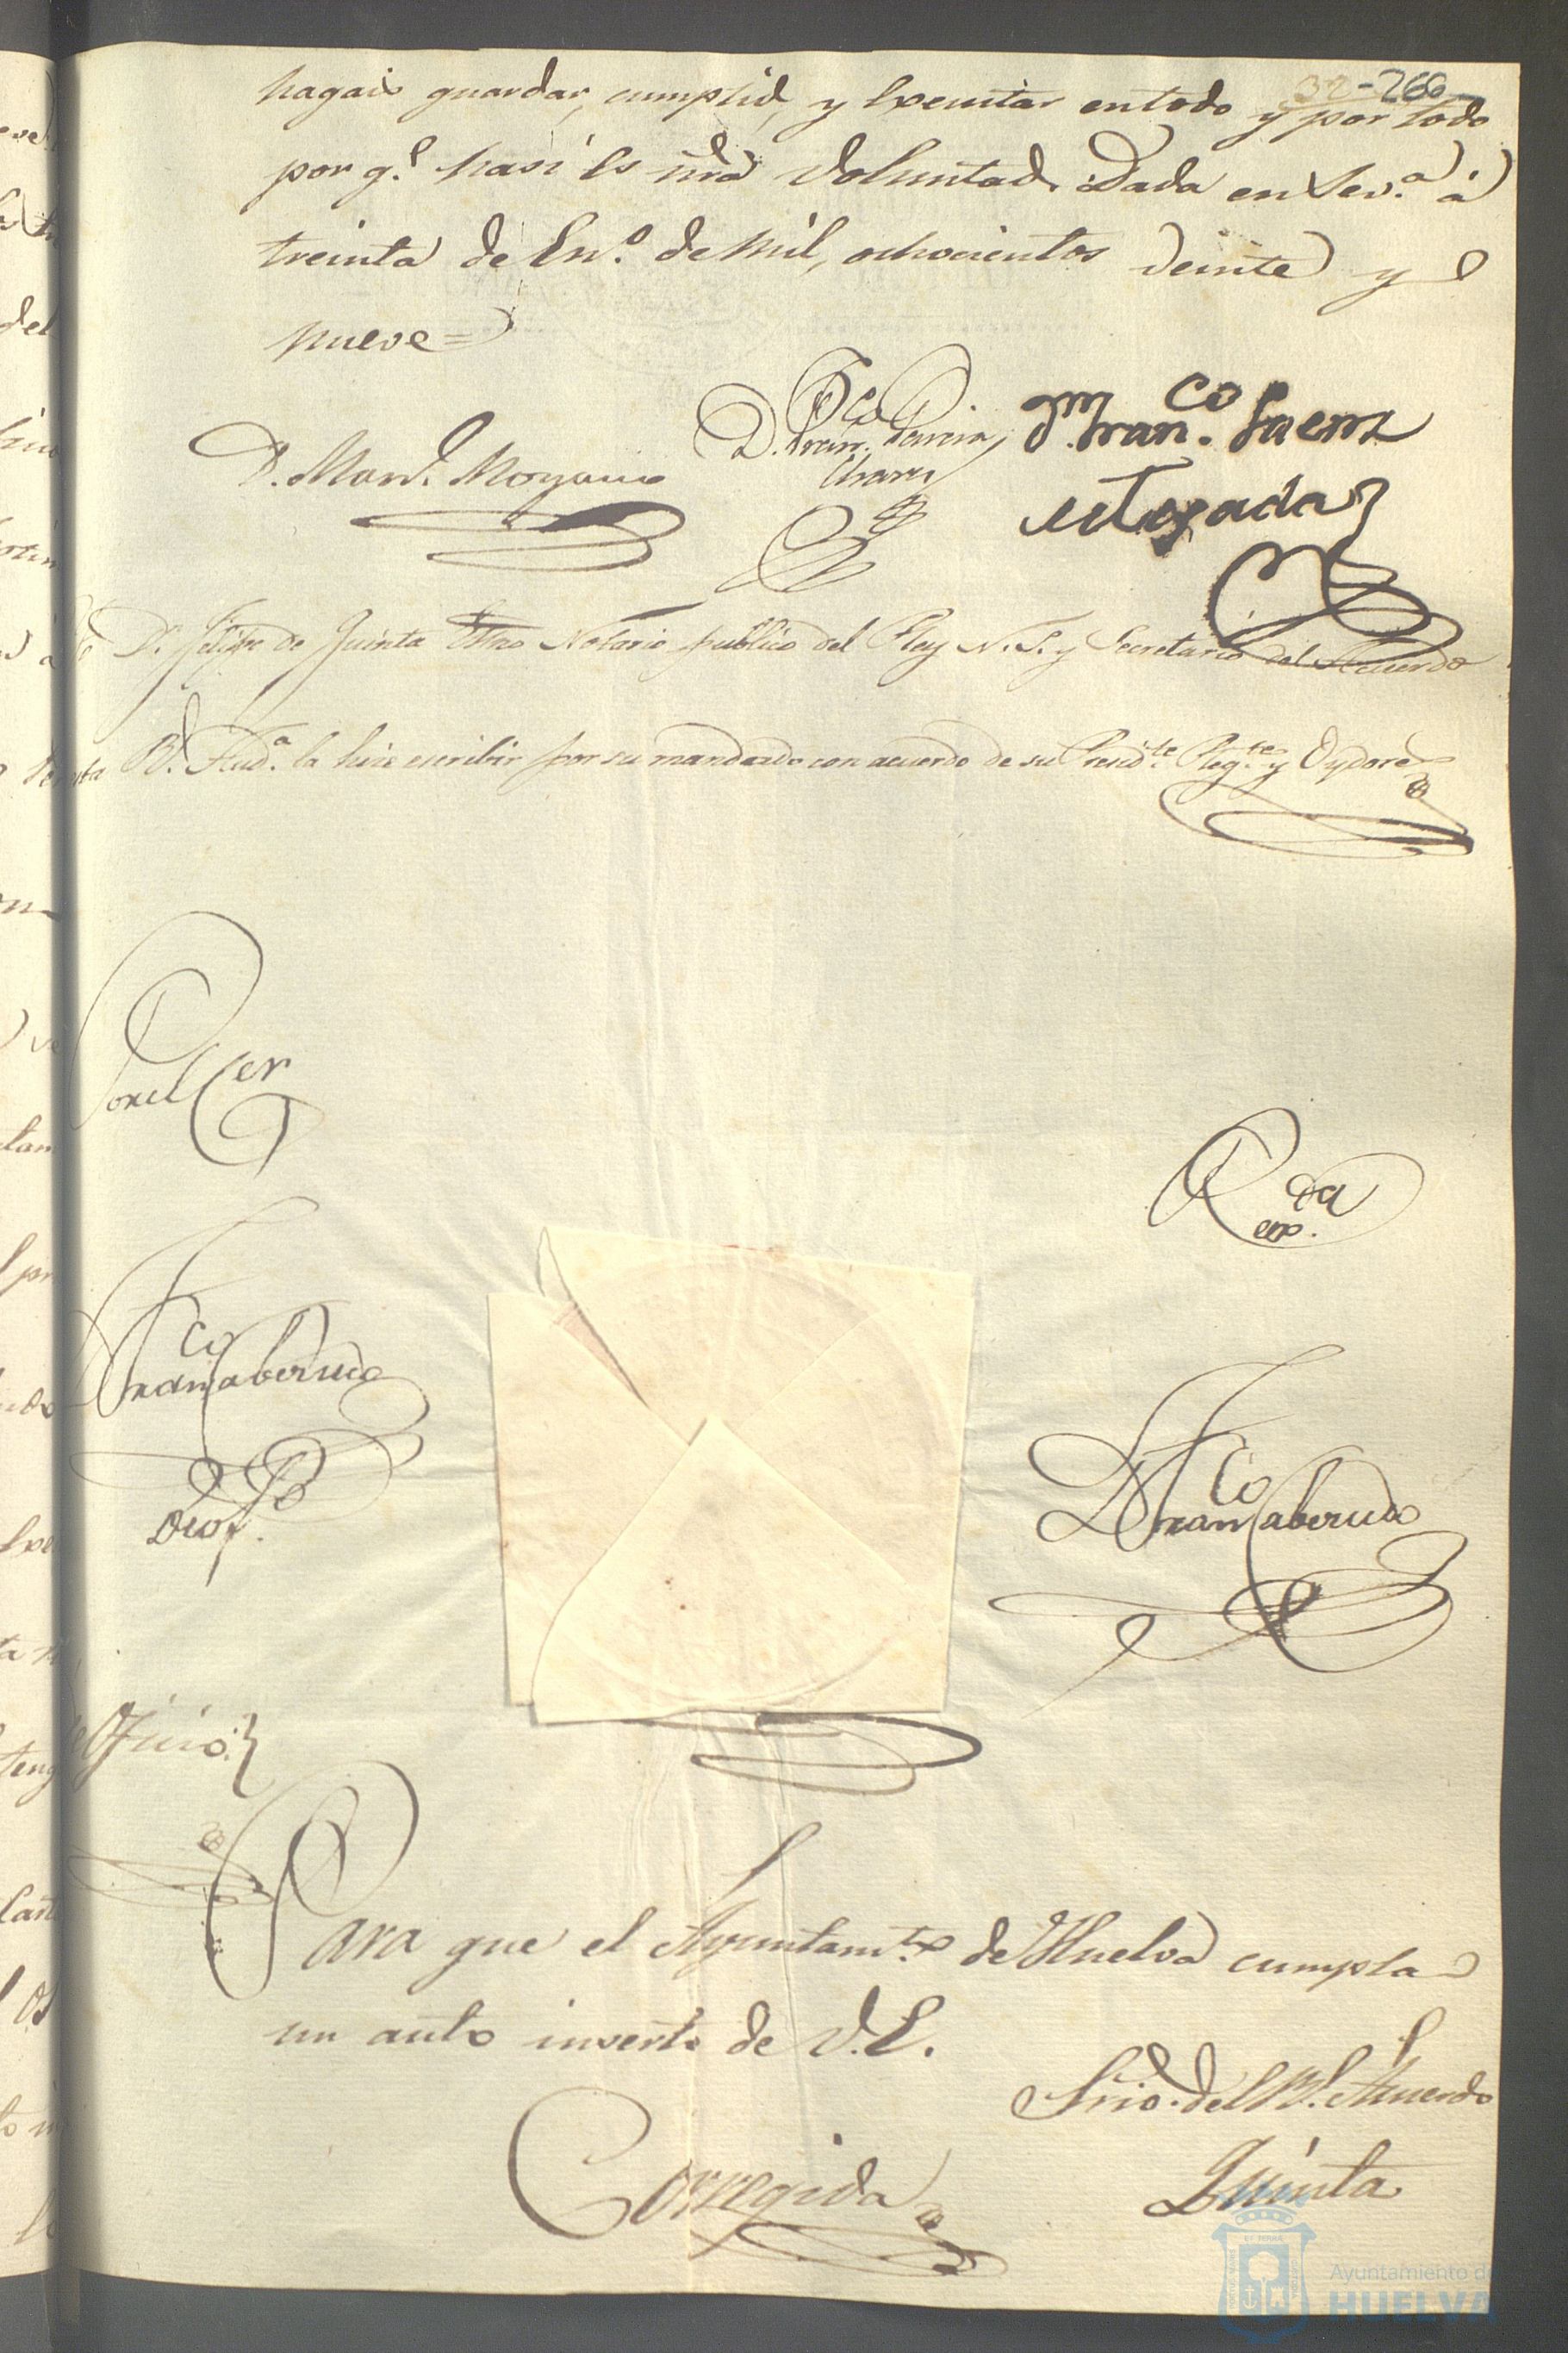 32-266
hagais guardar, cumplid, y executar entodo y por todo
por q.e hasi es nrã Voluntad. Dada en Sev.a á
treinta de En.o de Mil, ochocientos Veinte y
nueve=
D. Man.l Moyano
D. Fran.co Garcia
Chaves
D.n Fran.co Saenz
de Texada
D.n Felipe de Quinta Esno Notario público del Rey N. S. y Secretario del Acuerdo
R.l Aud.a la hize escribir por su mandado con acuerdo de su Presid.te Reg.te y Oydores
Por el Cer
R da
en.
Fran.co Taberudo
Dro
Fran.co Taberudo
de Oficio.
Para que el Ayuntam.to de Huelva cumpla
un auto inserto de V.E.
Srio. del R.l Acuerdo
Corregida
Quinta
Ayuntamiento de
HUELVA